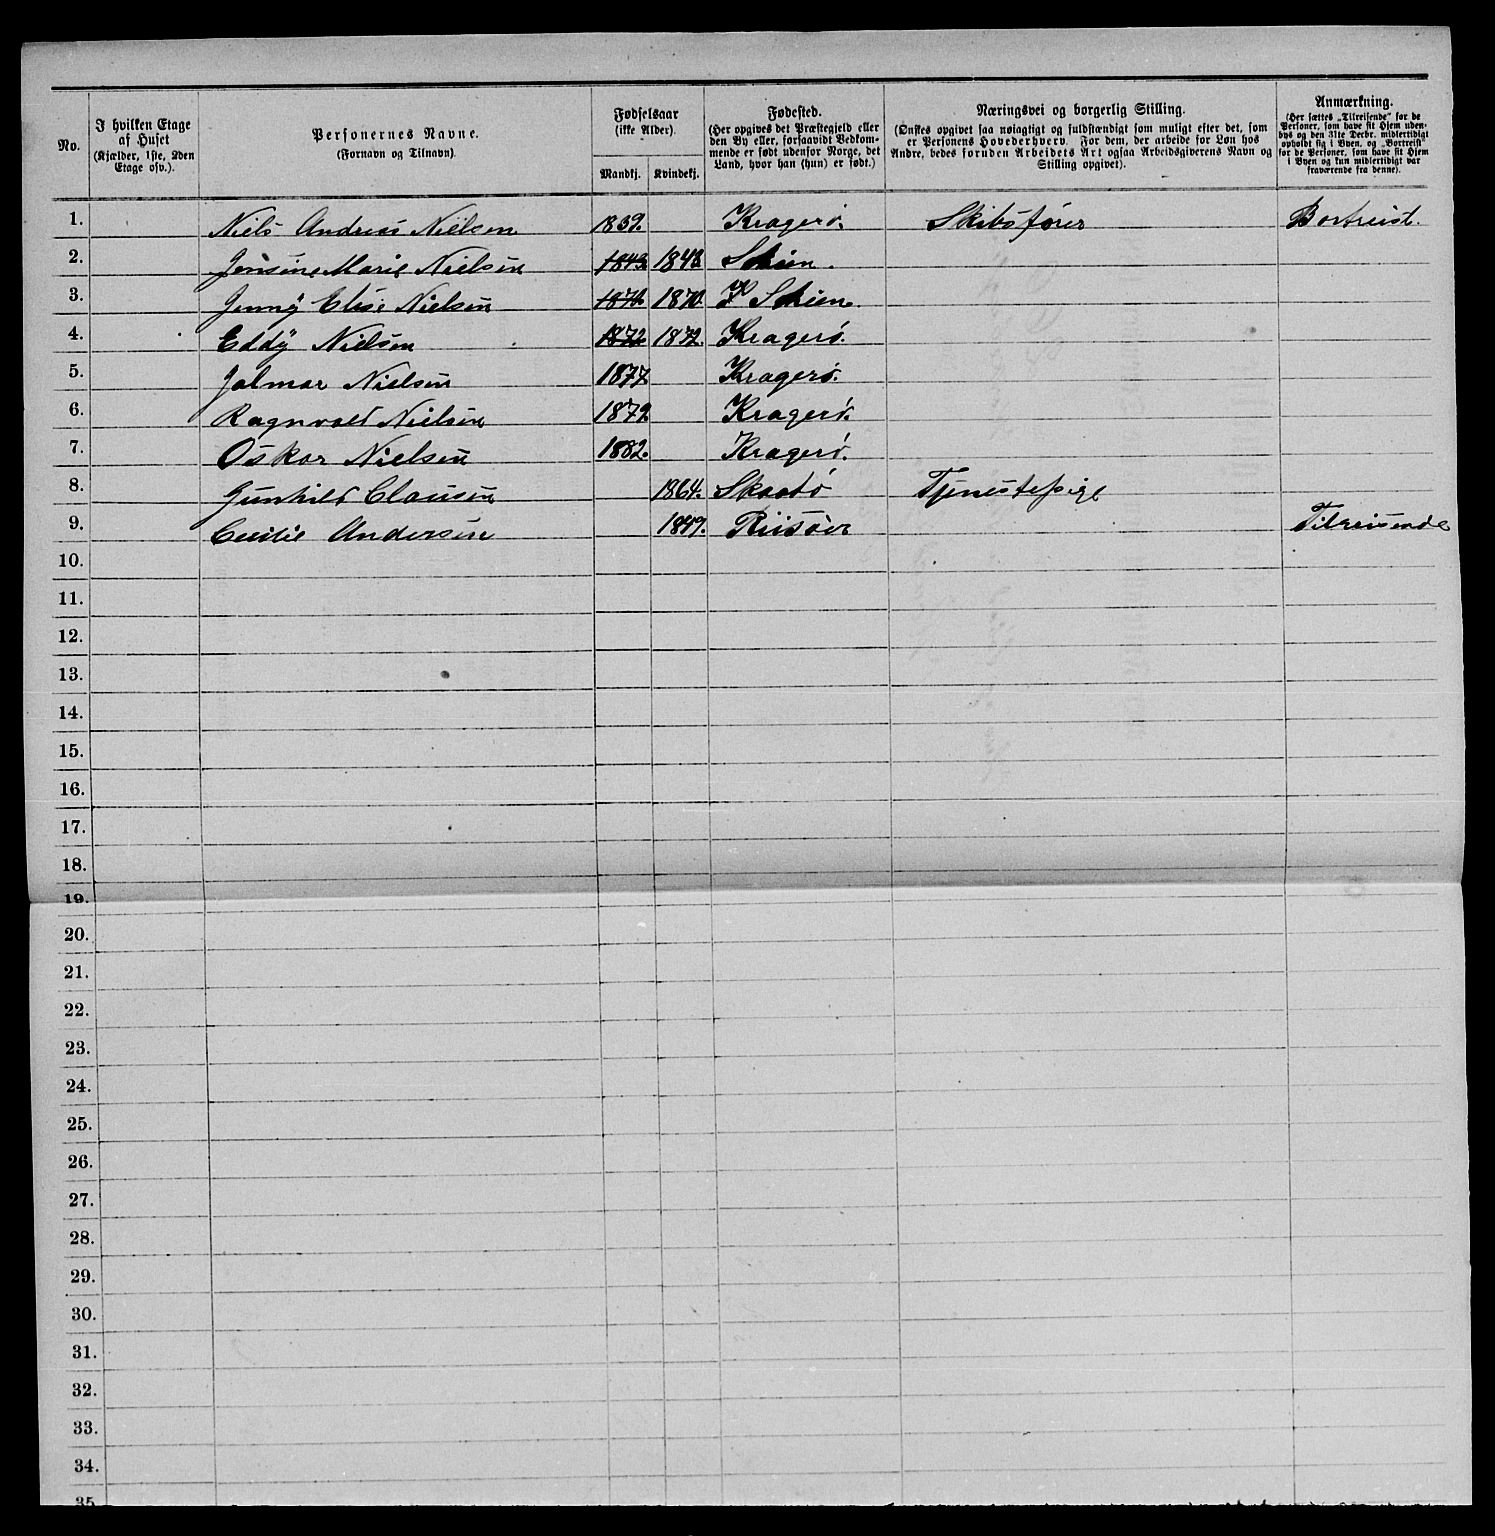 No.
I hvilken Etage af Huset (Kjælder, 1ste, 2den Etage osv.).
Personernes Navne. (Fornavn og Tilnavn).
Fødselsaar (ikke Alder). Mandkj. Kvindekj.
Fødested. (Her opgives det Præstegjeld eller den By eller, forsaavidt Bedkommende er født udenfor Norge, det Land, hvor han (hun) er født.)
Næringsvei og borgerlig Stilling. (Ønskes opgivet saa nøiagtigt og fuldstændigt som muligt efter det, som er Personens Hovederhverv. For dem, der arbeide for Løn hos Andre, bedes foruden Arbeidets Art ogsaa Arbeidsgiverens Navn og Stilling opgivet).
Anmærkning. (Her sættes „Tilreisende" for de Personer, som have sit Hjem udenbys og den 31te Decbr. midlertidigt opholdt sig i Byen, og „Bortreist" for de Personer, som have sit Hjem i Byen og kun midlertidigt var fraværende fra denne).
1. Niels Andreas Nielsen 1839. Kragerø. Skibsfører Bortreist.
2. Jensine Marie Nielsen 1843 1843 Skien.
3. Jenny Elise Nielsen 1870 1870 Skien.
4. Eddÿ Nielsen 1872 1872. Kragerø.
5. Jalmar Nielsen 1877 Kragerø.
6. Ragnvald Nielsen 1879 Kragerø.
7. Oskar Nielsen 1882. Kragerø.
8. Gunhild Clausen 1864. Skaatø Tjenestepige
9. Cecilie Andersen 1849. Riisøer Tilreisende
10.
11.
12.
13.
14.
15.
16.
17.
18.
19.
20.
21.
22.
23.
24.
25.
26.
27.
28.
29.
30.
31.
32.
33.
34.
35